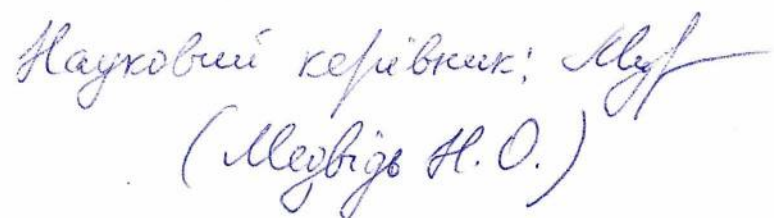 Науковий керівник:
(Медвідь Н.О.)